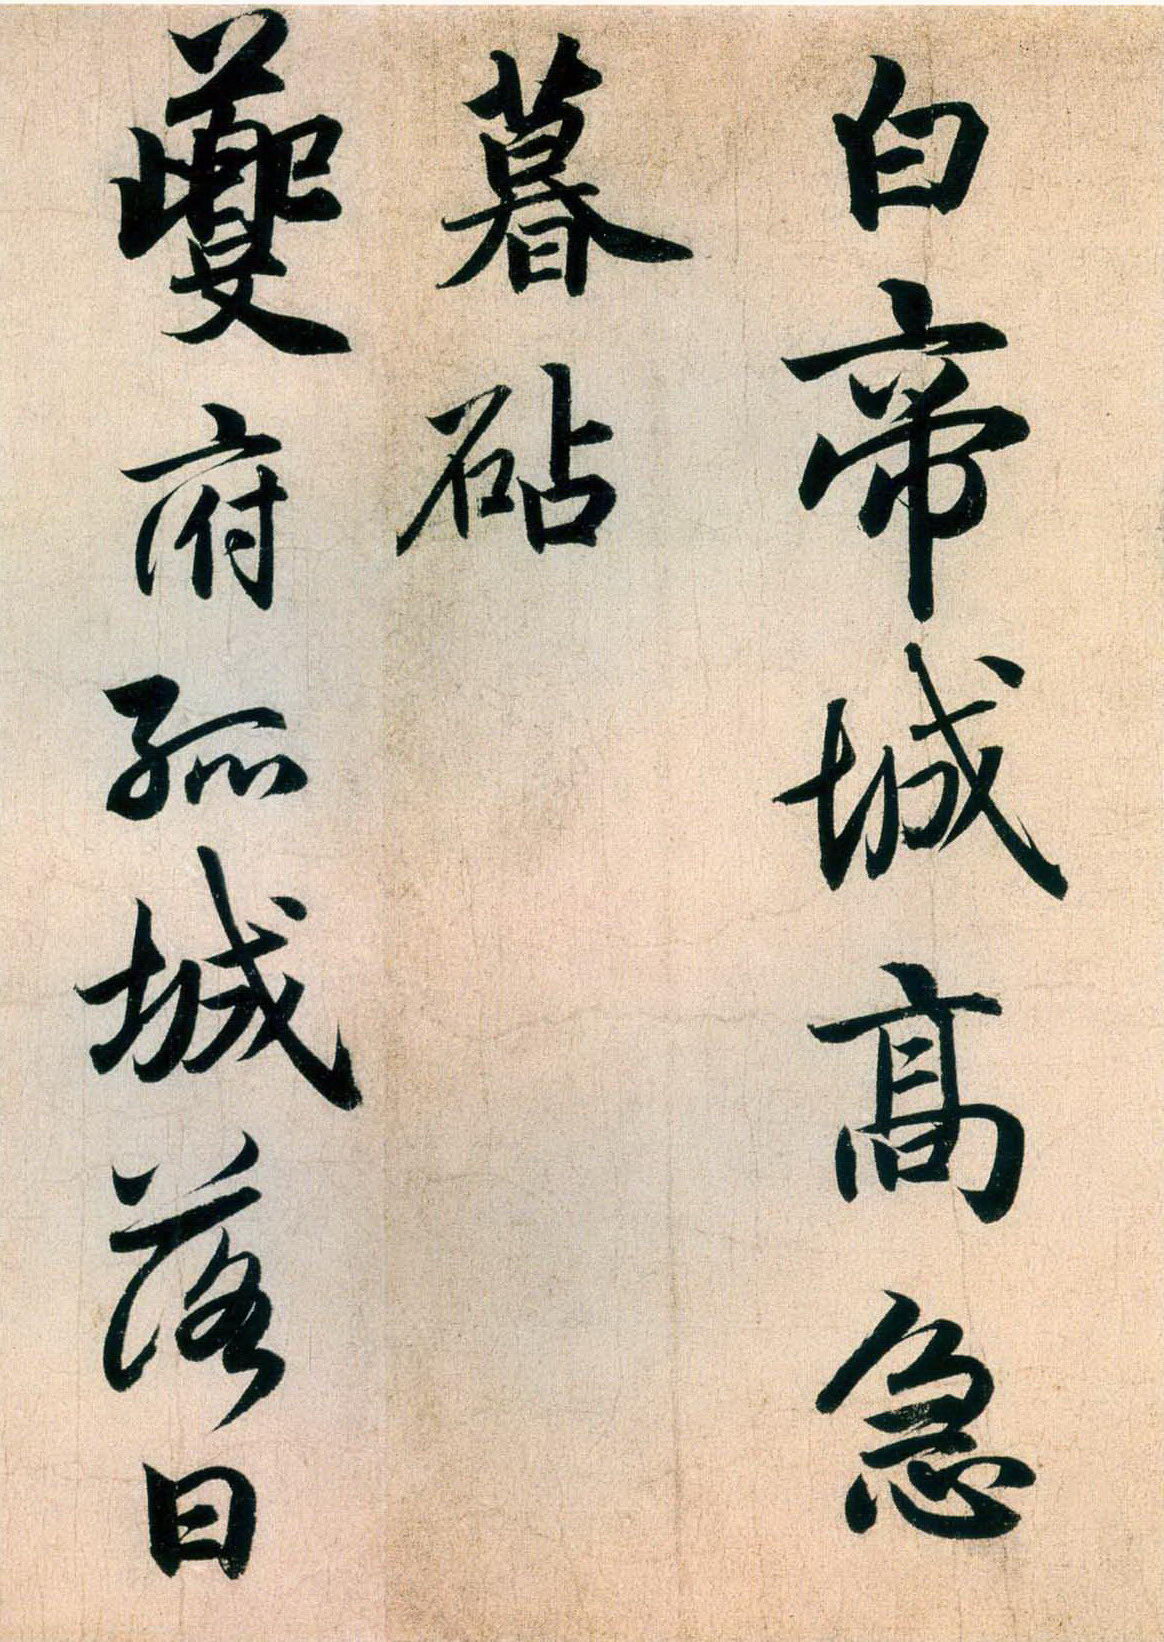 白帝城高急
暮砧
夔府孤城落日